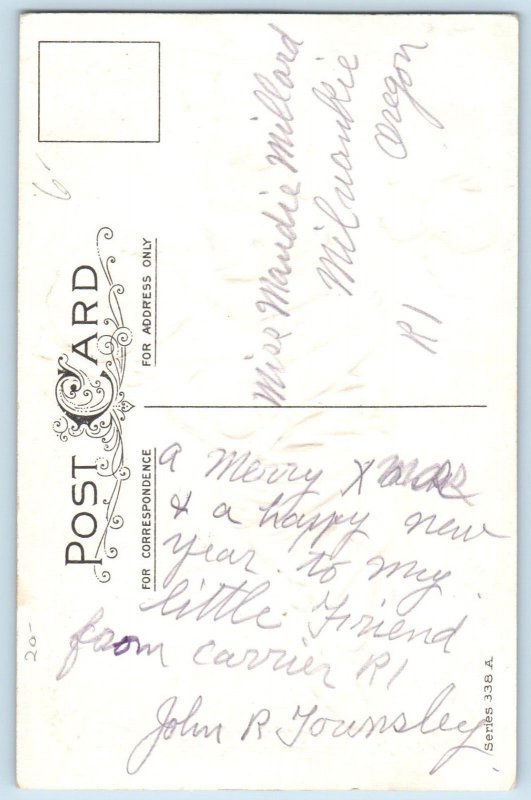 POST CARD
FOR CORRESPONDENCE
FOR ADDRESS ONLY
a Merry Xmas
& a happy new
year. to my
little Friend
from carrier R1
John R Townsley
Miss Maudie Millard
Milwaukie
Oregon
R1
Series 338 A
20-
6-